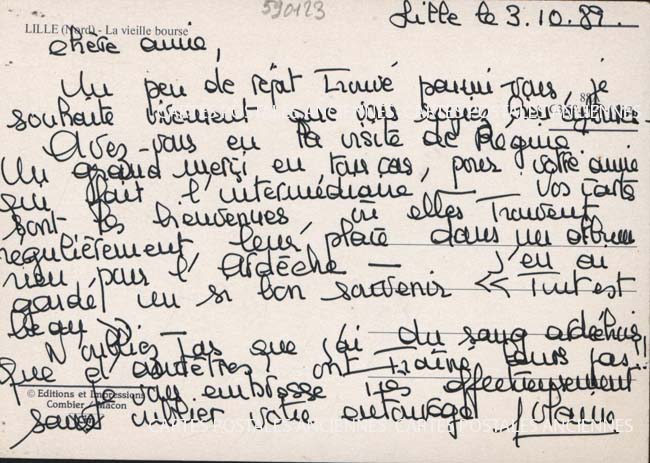 590123
Lille le 3.10.89.
LILLE (Nord) - La vieille bourse
chère amie,
Un peu de répit trouvé parmi vous, je
souhaite vivement que vous soyez
CARTES POSTALES ANCIENNES CARTES POSTALES ANCIENNES
Avez-vous eu la visite de Régine
Un grand merci en tous cas, pour votre amie
qui fait l'intermédiaire — vos cartes
sont les bienvenues où elles trouvent
régulièrement leur place dans un album
rien pour l'Ardèche — J'en ai
gardé un si bon souvenir << Tout est
beau >>
N'oubliez pas que j'ai du sang ardéchois
que et ancêtres ont trainé leurs pas!!
© Editions et Impressions
Combier Macon
je vous embrasse très affectueusement
sans oublier votre entourage
CARTES POSTALES ANCIENNES CARTES POSTALES ANCIENNES